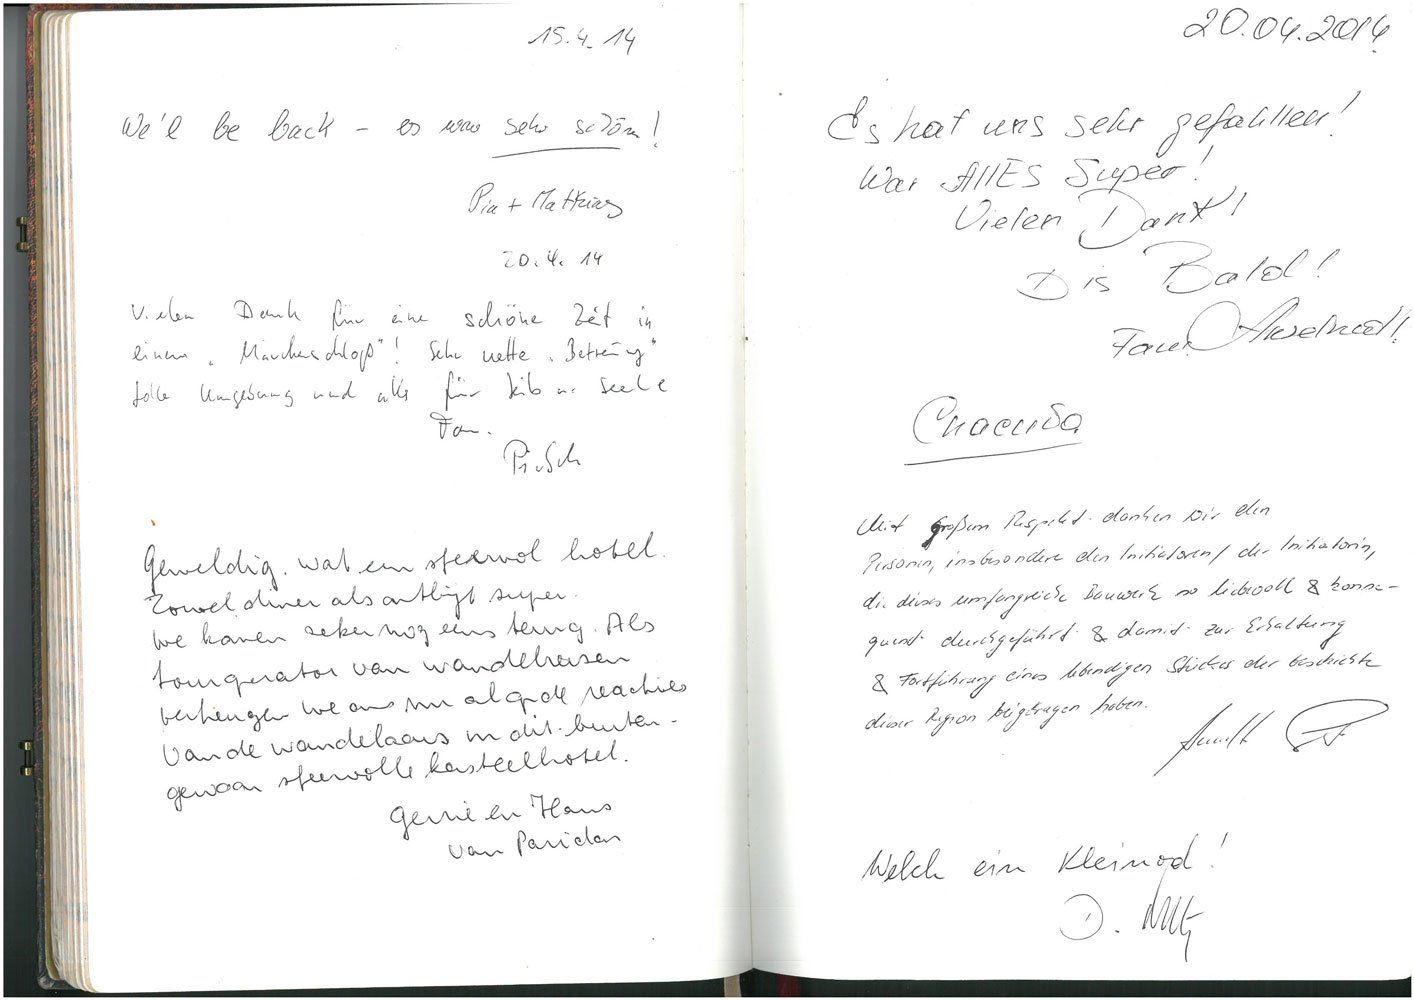 15.4.14
We'l be back – es war sehr schön!
Pia + Matthias
20.4.14
Vielen Dank für eine schöne Zeit in
einem "Märchenschloß"! Sehr nette "Betreuung"
tolle Umgebung und alles für Leib u. Seele
Fam.
Geweldig. wat een sfeervol hotel.
Zowel diner als ontbijt super.
We komen zeker nog eens terug. Als
touroperator van wandelreizen
verheugen we ons nu al op de reacties
van de wandelaars in dit buiten-
gewoon sfeervolle kasteelhotel.
Gerrie en Hans
van
20.04.2014
Es hat uns sehr gefahllen!
War AllES Super!
Vielen Dank!
Bis Bald!
Fam.
Спасиба
Mit großem Respekt danken wir den
Personen, insbesondere den Initiatoren/der Initiatorin,
die dieses umfangreiche Bauwerk so liebevoll & konse-
quent durchgeführt & damit zur Erhaltung
& Fortführung eines lebendigen Stückes der Geschichte
dieser Region beigetragen haben.
Welch ein Kleinod!
D.